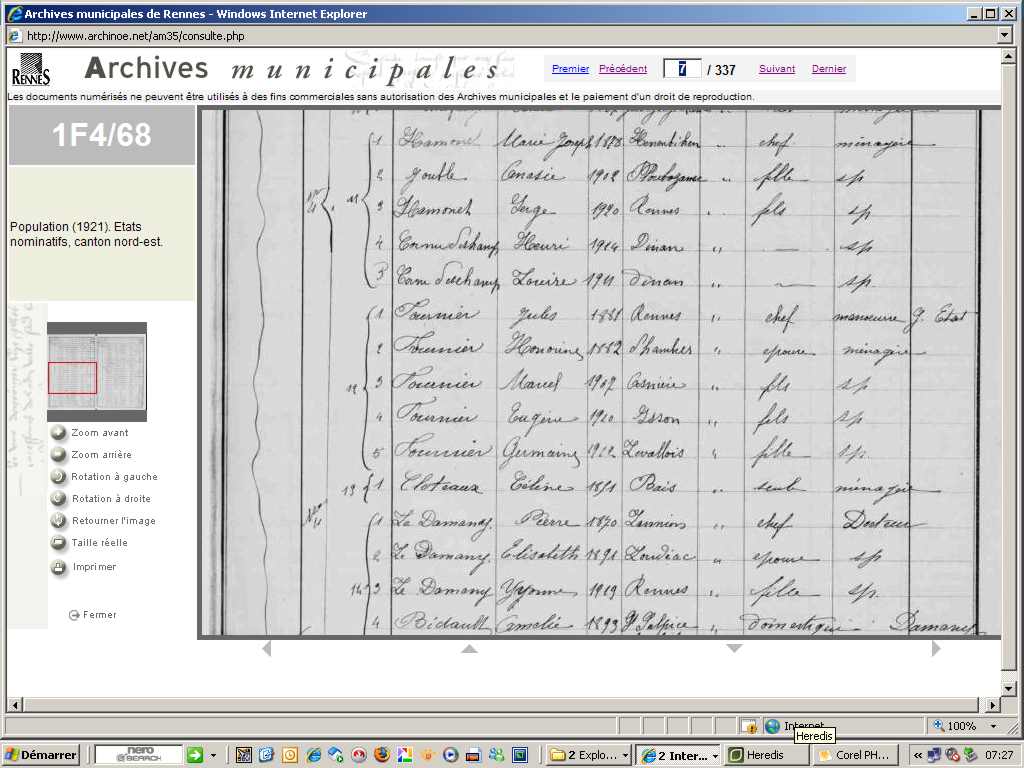 Archives municipales de Rennes - Windows Internet Explorer
http://www.archinoe.net/am35/consulte.php
RENNES Archives municipales Premier Précédent 7 / 337 Suivant Dernier
Les documents numérisés ne peuvent être utilisés à des fins commerciales sans autorisation des Archives municipales et le paiement d'un droit de reproduction.
1F4/68
Population (1921). Etats
nominatifs, canton nord-est.
Zoom avant
Zoom arrière
Rotation à gauche
Rotation à droite
Retourner l'image
Taille réelle
Imprimer
Fermer
1 Hamonet Marie Joseph 1878 " chef ménagère
2 1902 " fille sp
3 Hamonet Serge 1920 Rennes " fils sp
4 Henri 1914 Dinan " — sp
5 Louise 1911 Dinan " — sp
12 1 Fournier Jules 1881 Rennes " chef manoeuvre g. Etat
2 Fournier Honorine 1882 " epouse ménagère
3 Fournier Marcel 1907 Asnière " fils sp
4 Fournier Eugène 1910 " fils sp
5 Fournier Germaine 1912 Levallois " fille sp
13 1 Cloteaux Céline 1851 Bais " seule ménagère
1 Le Damany Pierre 1870 Lannion " chef Docteur
2 Le Damany Elisabeth 1891 Loudéac " epouse sp
14 3 Le Damany Yvonne 1919 Rennes " fille sp.
4 Bidault Amélie 1893 " domestique Damany
Internet
100%
Heredis
Démarrer
nero
SEARCH
2 Explo...
2 Inter...
Heredis
Corel PH...
«
07:27